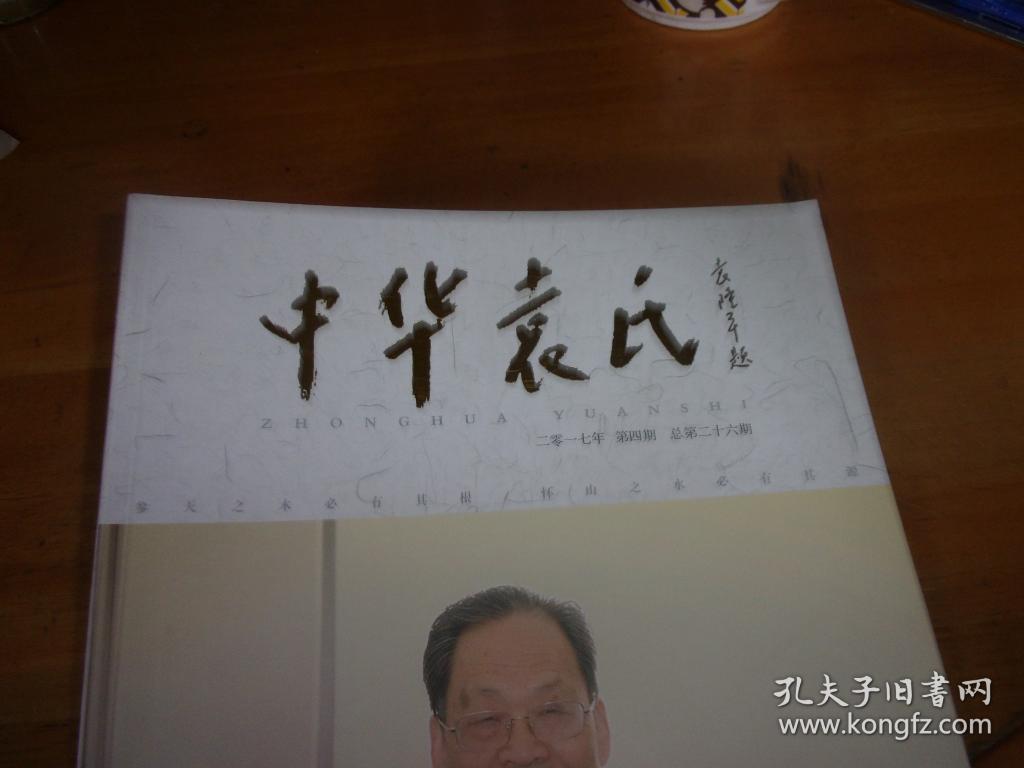 中华袁氏
袁隆平题
ZHONGHUA YUANSHI
二零一七年 第四期 总第二十六期
参天之木必有其根 怀山之水必有其源
孔夫子旧书网
www.kongfz.com